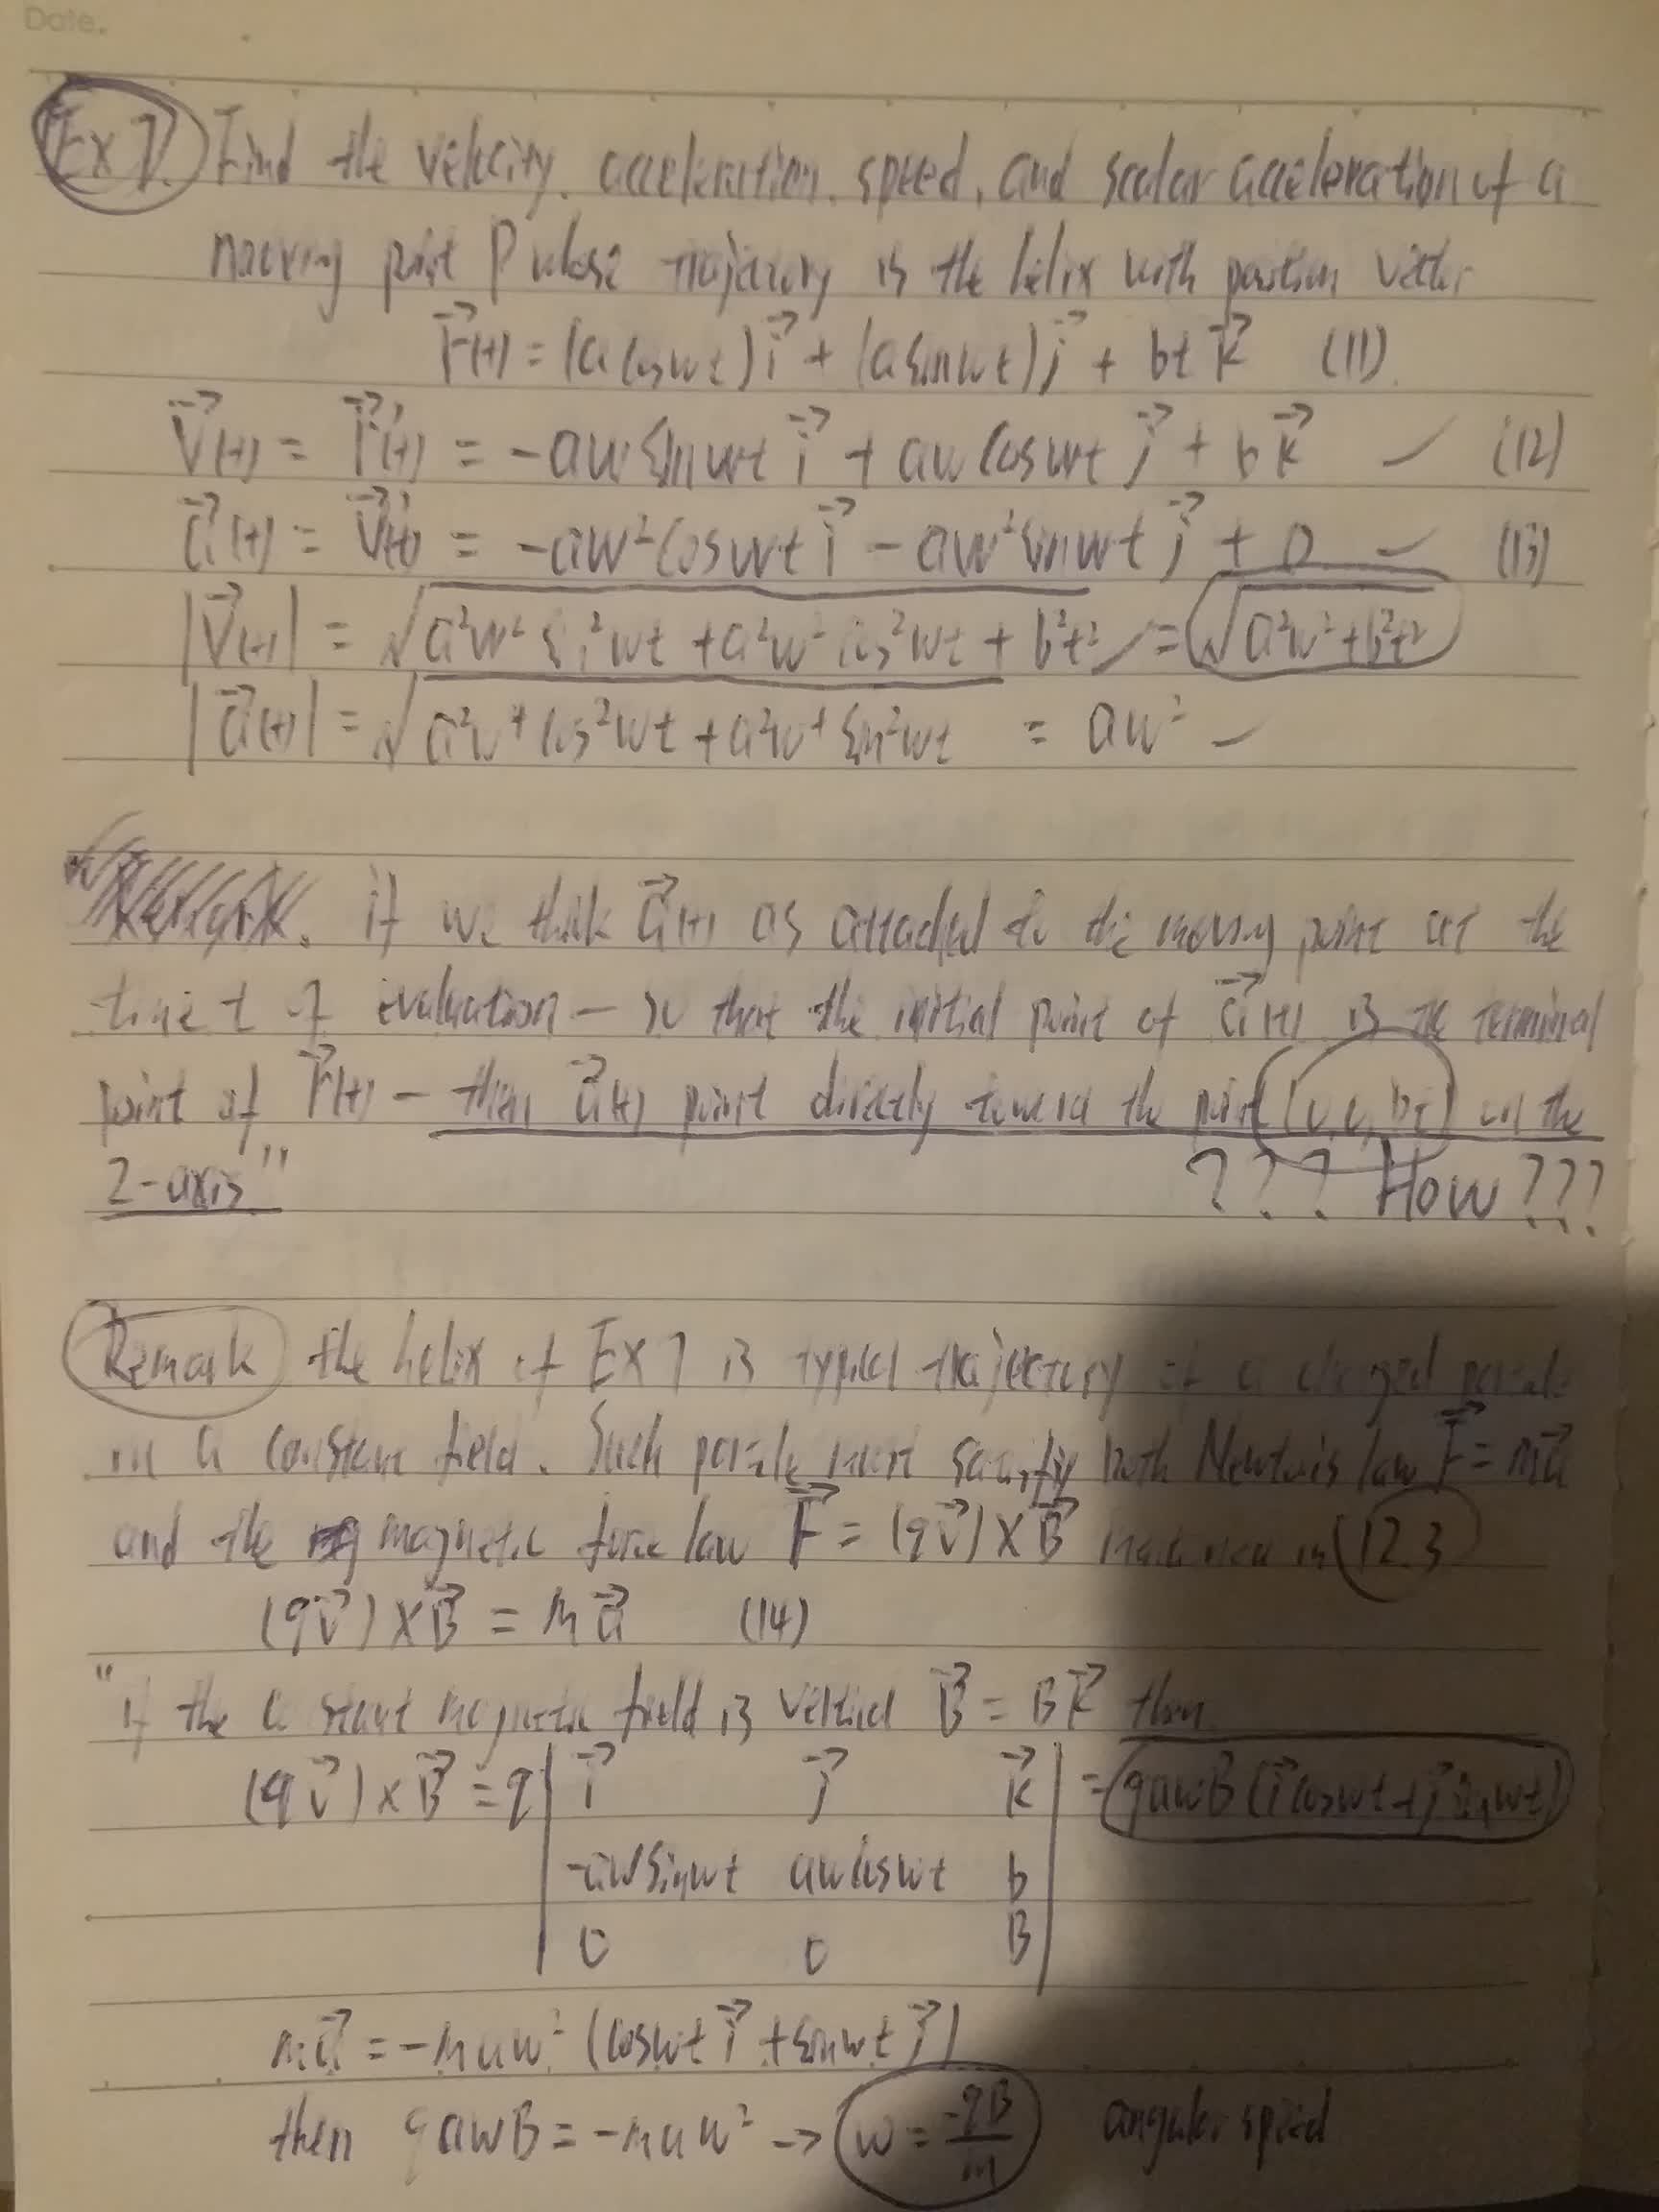 Date.
Ex 7. Find the velocity, acceleration, speed, and scalar acceleration of a
moving point P whose trajectory is the helix with position vector
r⃗(t) = (a cos wt) i⃗ + (a sin wt) j⃗ + bt k⃗ (11)
v⃗(t) = r⃗'(t) = -aw sin wt i⃗ + aw cos wt j⃗ + b k⃗ ✓ (12)
a⃗(t) = v⃗'(t) = -aw² cos wt i⃗ - aw² sin wt j⃗ + 0 ✓ (13)
|v⃗(t)| = √(a²w² sin² wt + a²w² cos² wt + b²t²) ✓ = √(a²w² + b²t²)
|a⃗(t)| = √(a²w⁴ cos² wt + a²w⁴ sin² wt) = aw² ✓
" if we think a⃗(t) as attached to the moving point at the
time t of evaluation — so that the initial point of a⃗(t) is the terminal
point of r⃗(t) — then a⃗(t) point directly toward the point (0, 0, bt) on the
z-axis"
??? How ???
Remark the helix of Ex 7 is typical trajectory of a charged particle
in a constant field. Such particle must satisfy both Newton's law F⃗ = ma⃗
and the magnetic force law F⃗ = (qv⃗) × B⃗ in 12.3
(qv⃗) × B⃗ = m a⃗ (14)
"if the constant magnetic field is vertical B⃗ = B k⃗ then
(qv⃗) × B⃗ = q | i⃗ j⃗ k⃗ | = qawB (i⃗ cos wt + j⃗ sin wt)
-aw sin wt aw cos wt b
0 0 B
m a⃗ = -maw² (cos wt i⃗ + sin wt j⃗)
then qawB = -maw² → w = -qB/m angular speed